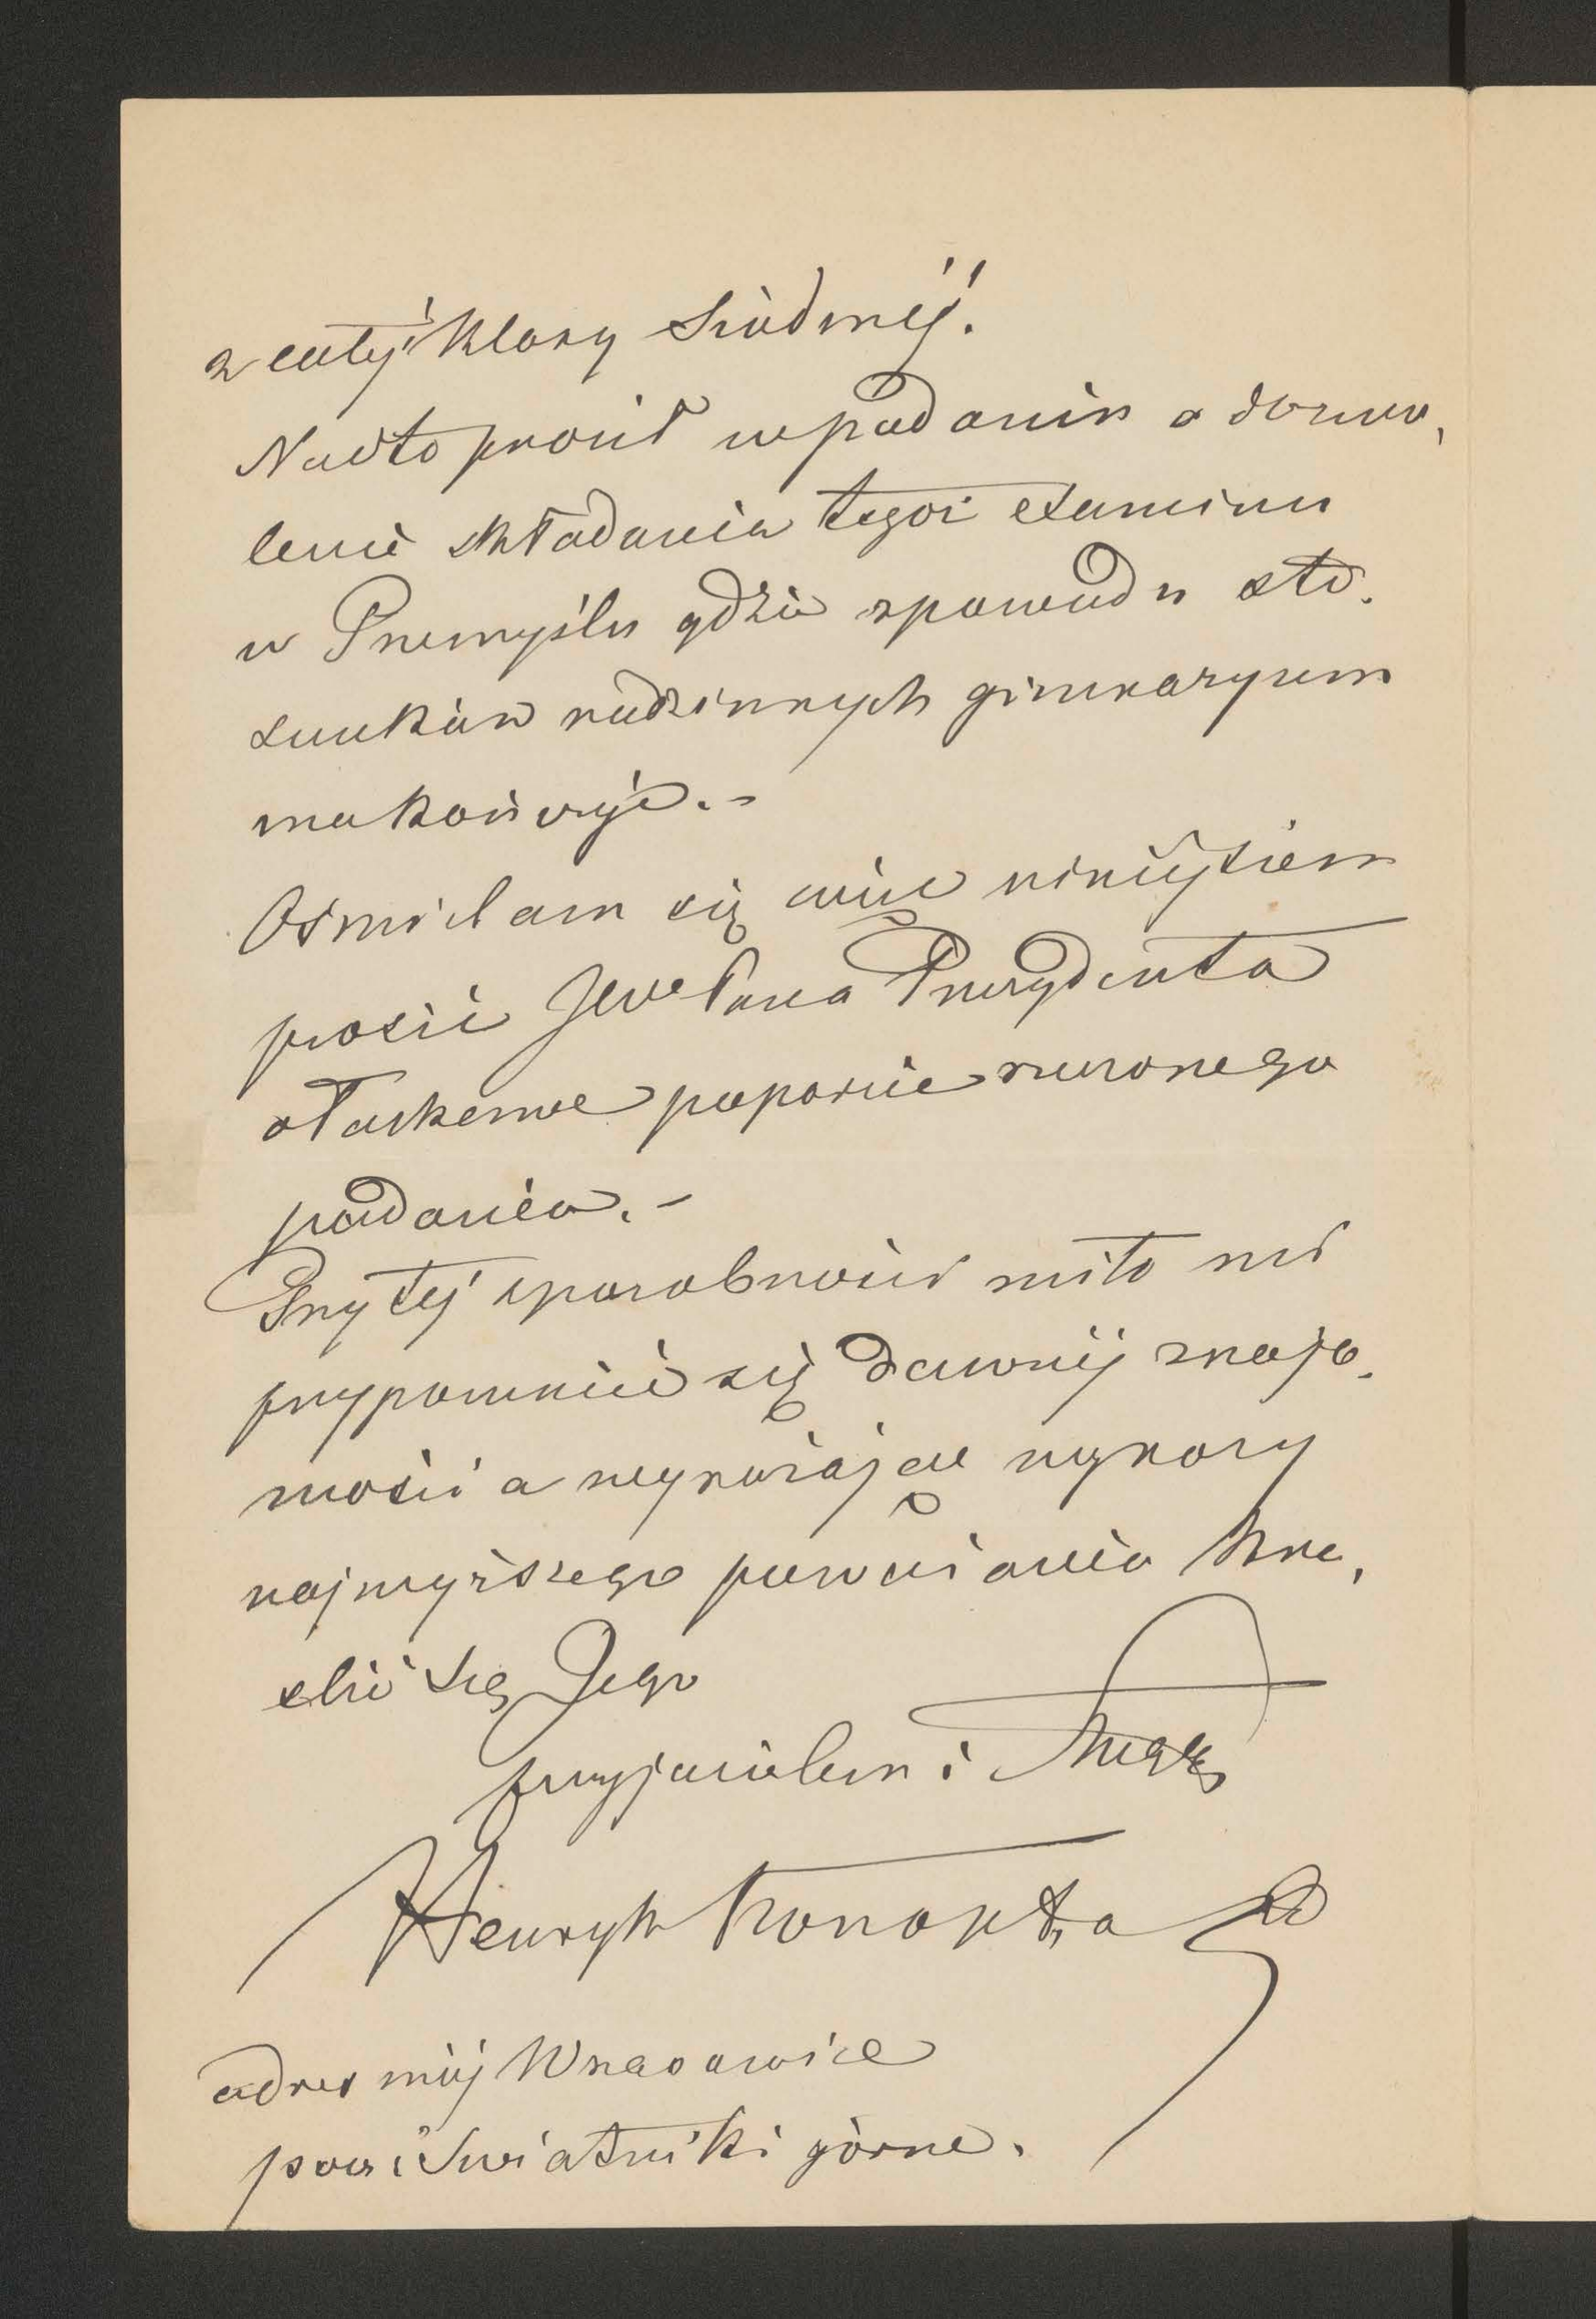 z całéj klasy siódméj.
Nadto prosił w podaniu o dozwo,
lenie składania tegoż examinu
w Przemyślu gdzie z powodu sto.
sunków rodzinnych gimnazyum
ma kończyć. -
Ośmielam się więc niniéjszem
prosić JWe Pana Prezydenta
o łaskawe poparcie rzeczonego
podania. -
Przy téj sposobności miło mi
przypomnieć się dawnéj znajo.
mości a wyrażając wyrazy
najwyższego poważania kre,
ślić się Jego
przyjacielem i sługą
Henryk Konopka
adres mój Wrzasowice
pocz: Świątniki górne.